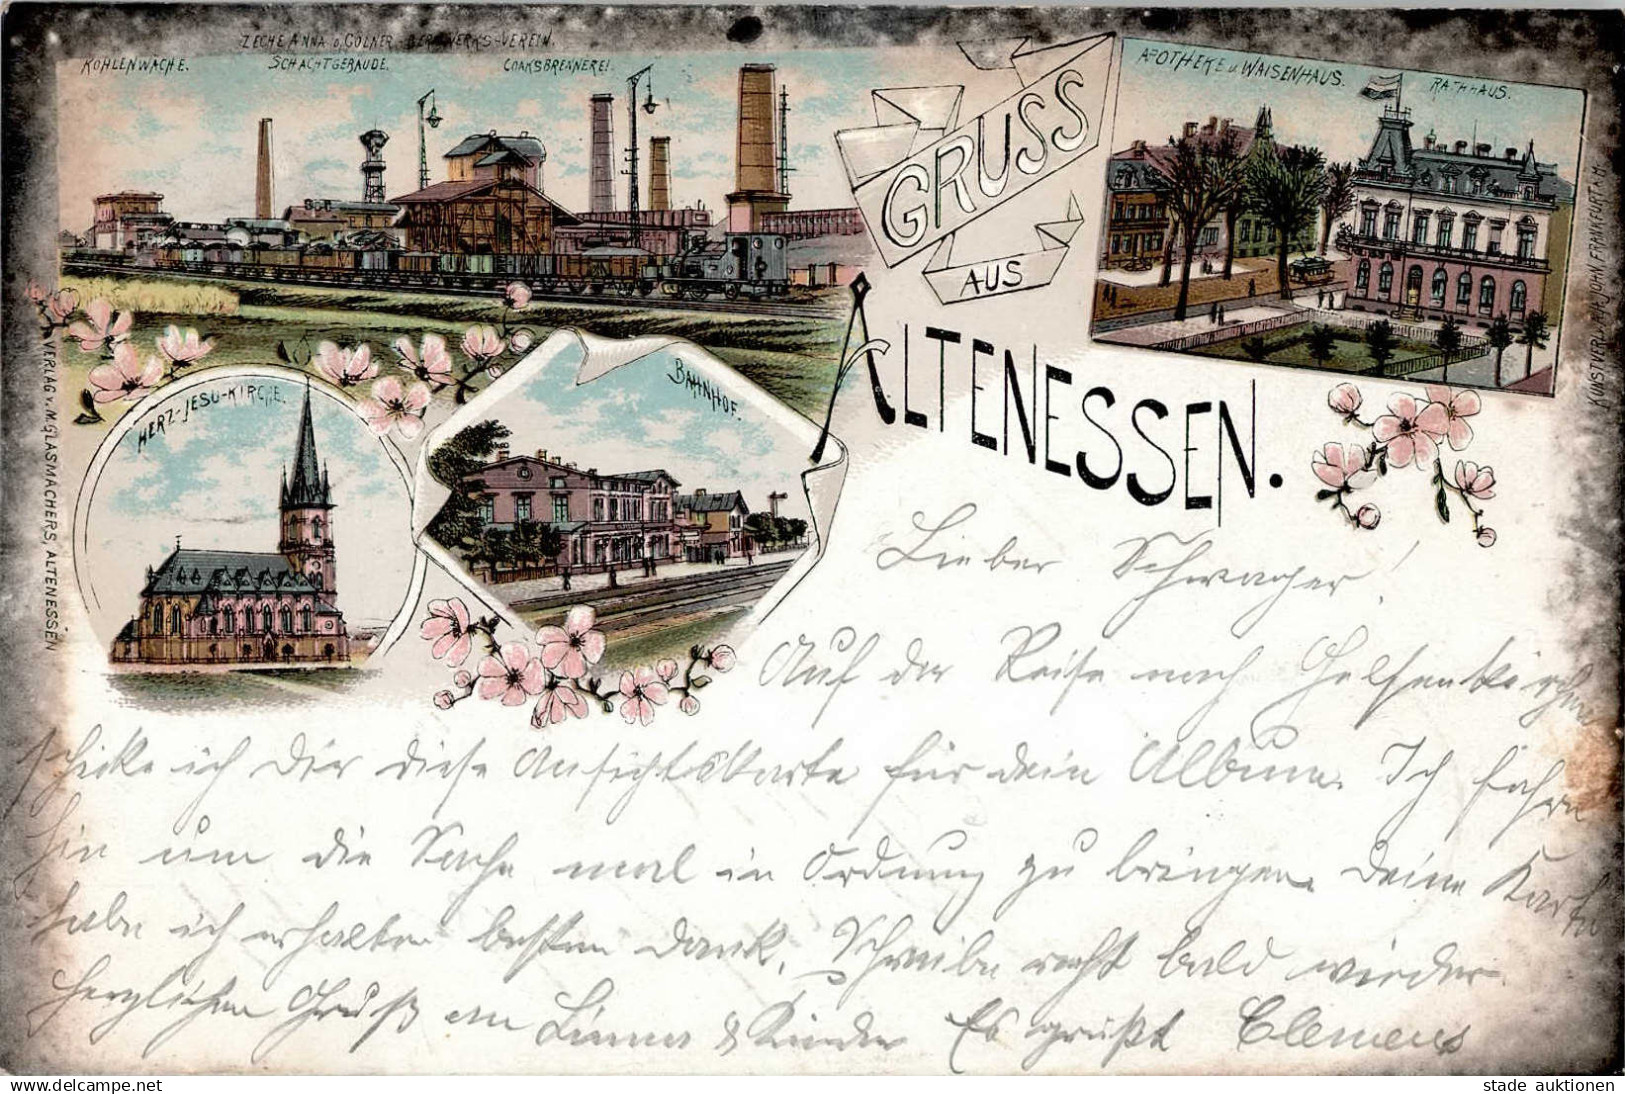 ZECHE ANNA D. CÖLNER-BERGWERKS-VEREIN.
KOHLENWÄCHE. SCHACHTGEBÄUDE. COAKSBRENNEREI.
GRUSS
AUS
ALTENESSEN.
APOTHEKE u. WAISENHAUS. RATHHAUS.
HERZ-JESU-KIRCHE.
BAHNHOF.
VERLAG v. M. GLASMACHERS, ALTENESSEN
KUNSTVERL. A. JOHN FRANKFURT A. M.
Lieber Schwager!
Auf der Reise nach Gelsenkirchen
schicke ich Dir diese Ansichtskarte für dein Album. Ich fahre
hin um die Sache mal in Ordnung zu bringen. Deine Karte
habe ich erhalten besten Dank. Schreibe recht bald wieder.
Herzlichen Gruß an & Kinder Es grüßt Clemens
www.delcampe.net
stade auktionen